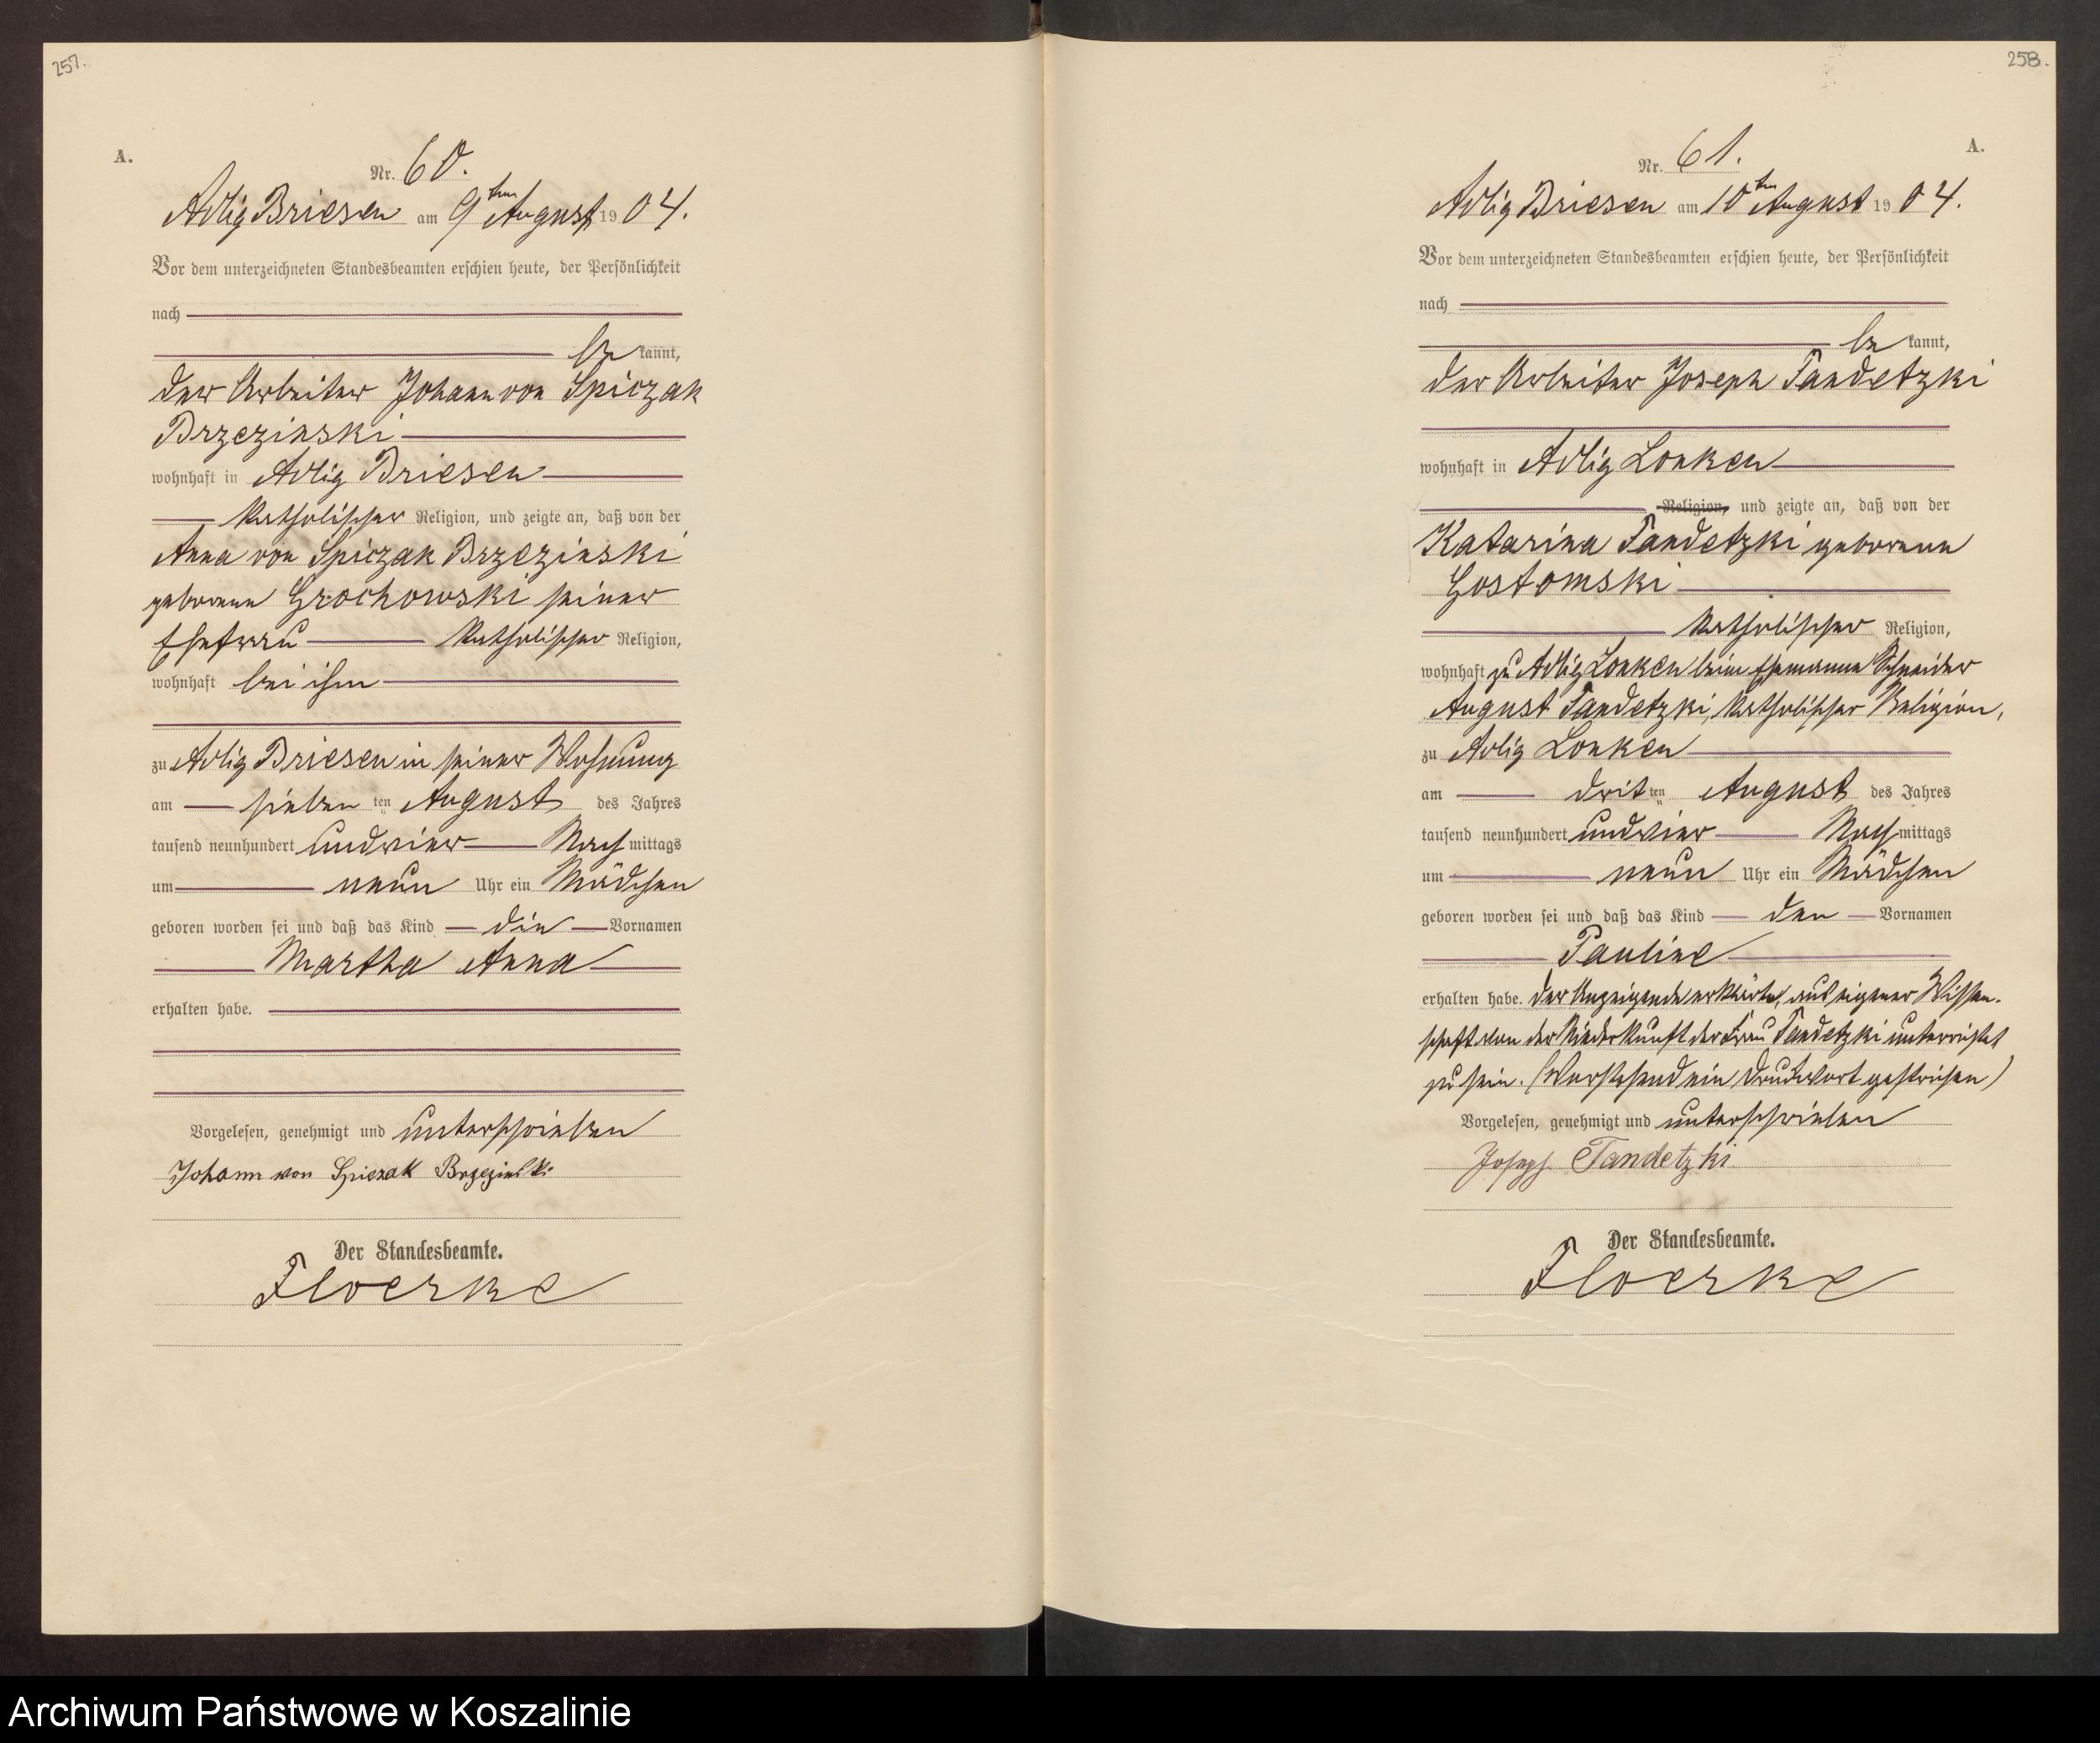 257.
A.
Nr. 60.
Adlig Briesen am 9ten August 1904.
Vor dem unterzeichneten Standesbeamten erschien heute, der Persönlichkeit
nach
be kannt,
der Arbeiter Johann von Spiczak
Brzezinski
wohnhaft in Adlig Briesen
katholischer Religion, und zeigte an, daß von der
Anna von Spiczak Brzezinski
geborene Grochowski seiner
Ehefrau katholischer Religion,
wohnhaft bei ihm
zu Adlig Briesen in seiner Wohnung
am sieben ten August des Jahres
tausend neunhundert undvier Nach mittags
um neun Uhr ein Mädchen
geboren worden sei und daß das Kind die Vornamen
Martha Anna
erhalten habe.
Vorgelesen, genehmigt und unterschrieben
Johann von Spiczak Brzezinski
Der Standesbeamte.
Floerke
258.
A.
Nr. 61.
Adlig Briesen am 10ten August 1904.
Vor dem unterzeichneten Standesbeamten erschien heute, der Persönlichkeit
nach
be kannt,
der Arbeiter Joseph Tandetzki
wohnhaft in Adlig Lonken
Religion, und zeigte an, daß von der
Katarina Tandetzki geborene
Gostomski
katholischer Religion,
wohnhaft zu Adlig Lonken beim Ehemanne Schneider
August Tandetzki, katholischer Religion,
zu Adlig Lonken
am drit ten August des Jahres
tausend neunhundert undvier Nach mittags
um neun Uhr ein Mädchen
geboren worden sei und daß das Kind den Vornamen
Pauline
erhalten habe. Der Anzeigende erklärte, aus eigener Wissen-
schaft von der Niederkunft der Frau Tandetzki unterrichtet
zu sein. (Vorstehend ein Druckwort gestrichen)
Vorgelesen, genehmigt und unterschrieben
Joseph Tandetzki
Der Standesbeamte.
Floerke
Archiwum Państwowe w Koszalinie